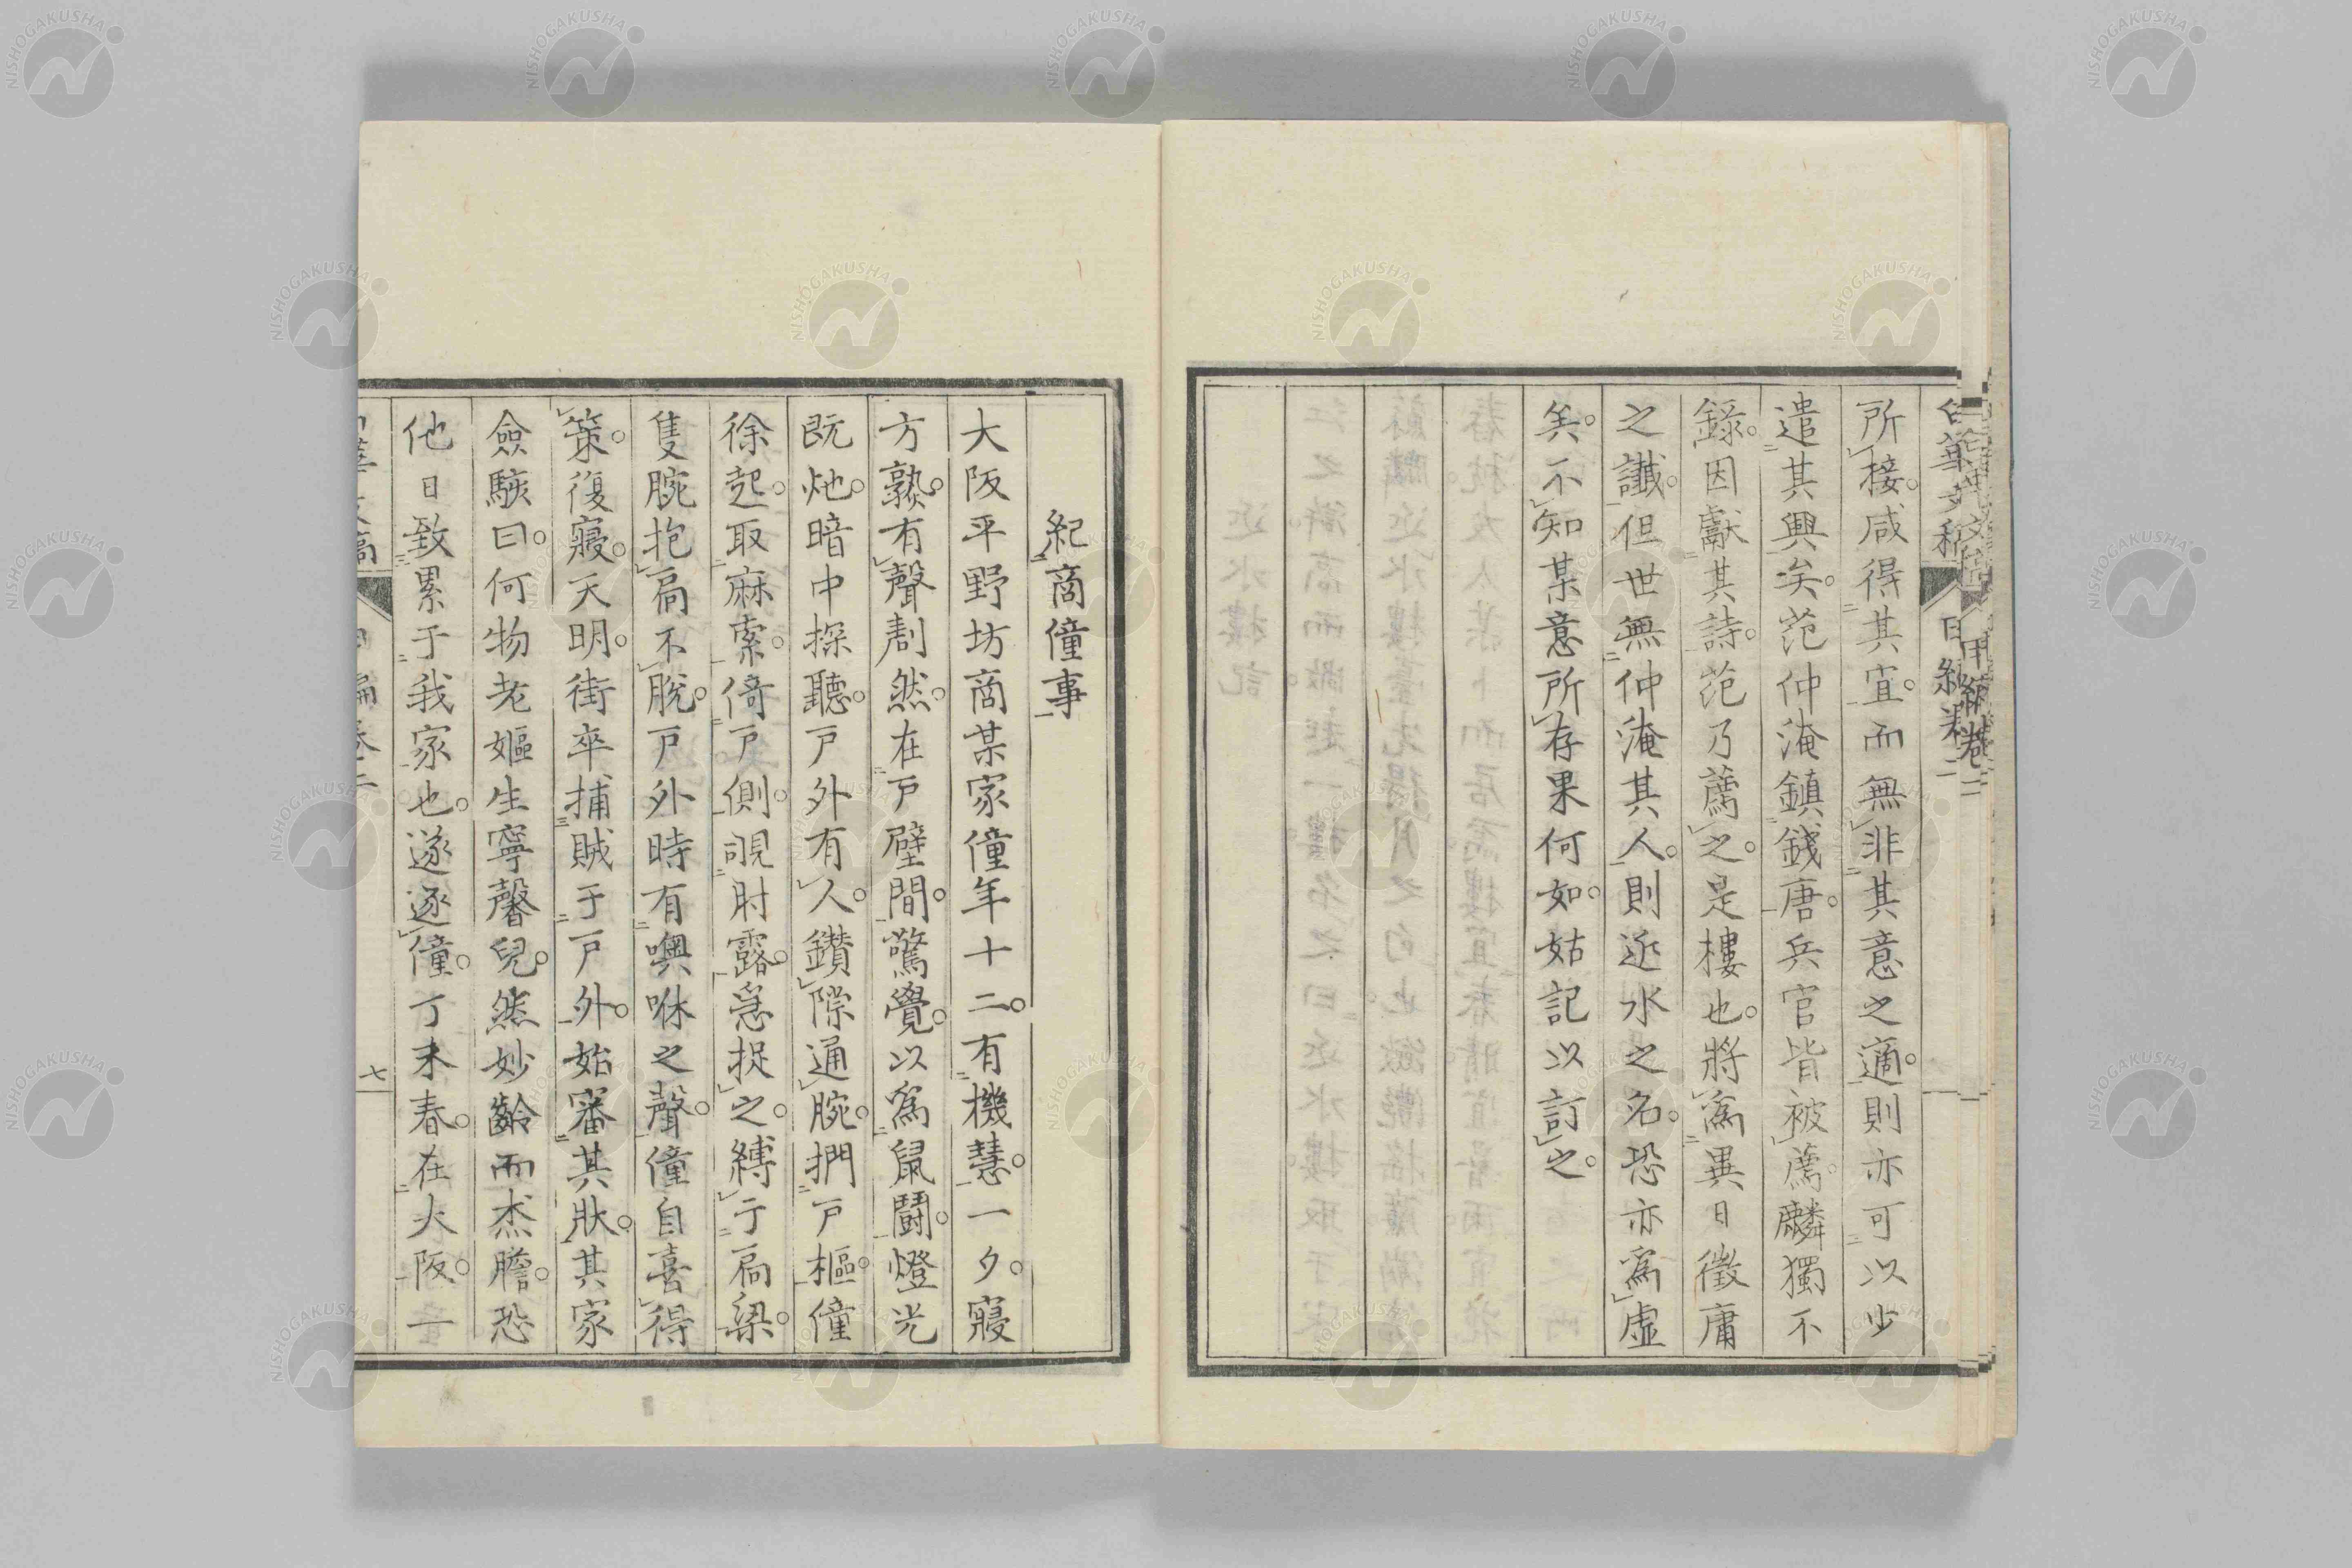 所接咸得其宜而無非其意之適則亦可以少
遣其興矣范仲淹鎮錢唐兵官皆被薦麟獨不
錄因獻其詩范乃薦之是樓也將爲異日徵庸
之讖但世無仲淹其人則近水之名恐亦爲虛
矣不知某意所存果何如姑記以訂之
紀商僮事
大阪平野坊商某家僮年十二有機慧一夕寢
方熟有聲剨然在戸壁間驚覺以爲鼠鬪燈光
既灺暗中探聽戸外有人鑽隙通腕捫戸樞僮
徐起取麻索倚戸側覘肘露急捉之縛于扃梁
隻腕抱扃不脫戸外時有噢咻之聲僮自喜得
策復寢天明街卒捕賊于戸外始審其狀其家
僉駭曰何物老嫗生寧馨兒然妙齡而杰膽恐
他日致累于我家也遂逐僮丁未春在大阪一
七
NISHOGAKUSHA